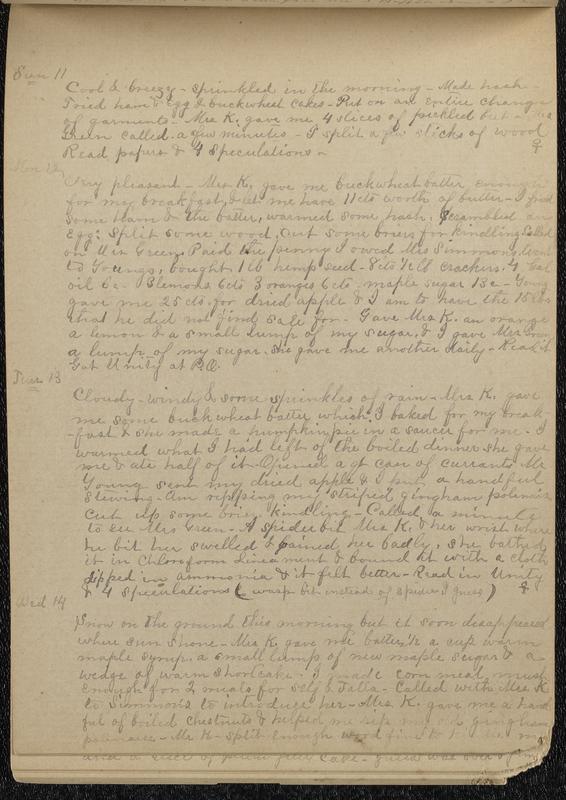 Sun 11
Cool & breezy - sprinkled in the morning - Made hash -
Fried ham & Egg & buckwheat cakes - Put on an Entire change
of garments - Mrs K. gave me 4 slices of pickled
Green called a few minutes - I split a few sticks of wood
Read papers & 4 Speculations -
Mon 12
Very pleasant - Mrs K. gave me buckwheat batter enough
for my breakfast, & let me have 11 cts worth of butter - I fried
some ham & the batter, warmed some hash, Scrambled an
Egg: Split some wood, cut some briers for kindling. Called
on Mrs Green, Paid the penny I owed Mrs Simmons, Went
to Youngs, bought 1 lb hemp seed - 8 cts ½ lb crackers. 4
oil 3 lemons 6 cts 3 oranges 6 cts maple sugar 13 c - Young
gave me 25 cts for dried apple & I am to have the 15 lbs
that he did not find sale for - Gave Mrs K. an orange
a lemon & a small lump of my sugar, & I gave Mrs Green
a lump of my sugar. She gave me another daily - Read it
Got Unity at P.O.
Tues 13
Cloudy - windy & some sprinkles of rain - Mrs K. gave
me some buckwheat batter which I baked for my break-
-fast & she made a pumpkin pie in a saucer for me - I
warmed what I had left of the boiled dinner she gave
me & ate half of it - Opened a qt can of currants Mr
Young sent my dried apple & I put a handful
stewing - Am ripping my striped gingham polonaise
Cut up some brier kindling - Called a minute
to see Mrs Green - A spider bit Mrs K. & her wrist where
he bit her swelled & pained her badly, she bathed
it in Chloroform Lineament & bound it with a cloth
dipped in ammonia & it felt better - Read in Unity
& 4 Speculations ( wasp bit instead of spider I guess )
Wed 14
Snow on the ground this morning but it soon disappeared
where sun shone - Mrs K. gave me batter, ½ a cup warm
maple syrup, a small lump of new maple sugar & a
wedge of warm shortcake - I made corn meal mush
Enough for 2 meals for self & Tatta - Called with Mrs K
to Simmons to introduce her - Mrs K. gave me a hand
ful of boiled chestnuts & helped me rip my old gingham
polonaise - Mr K. split Enough wood fine to
and a slice of plum cake -